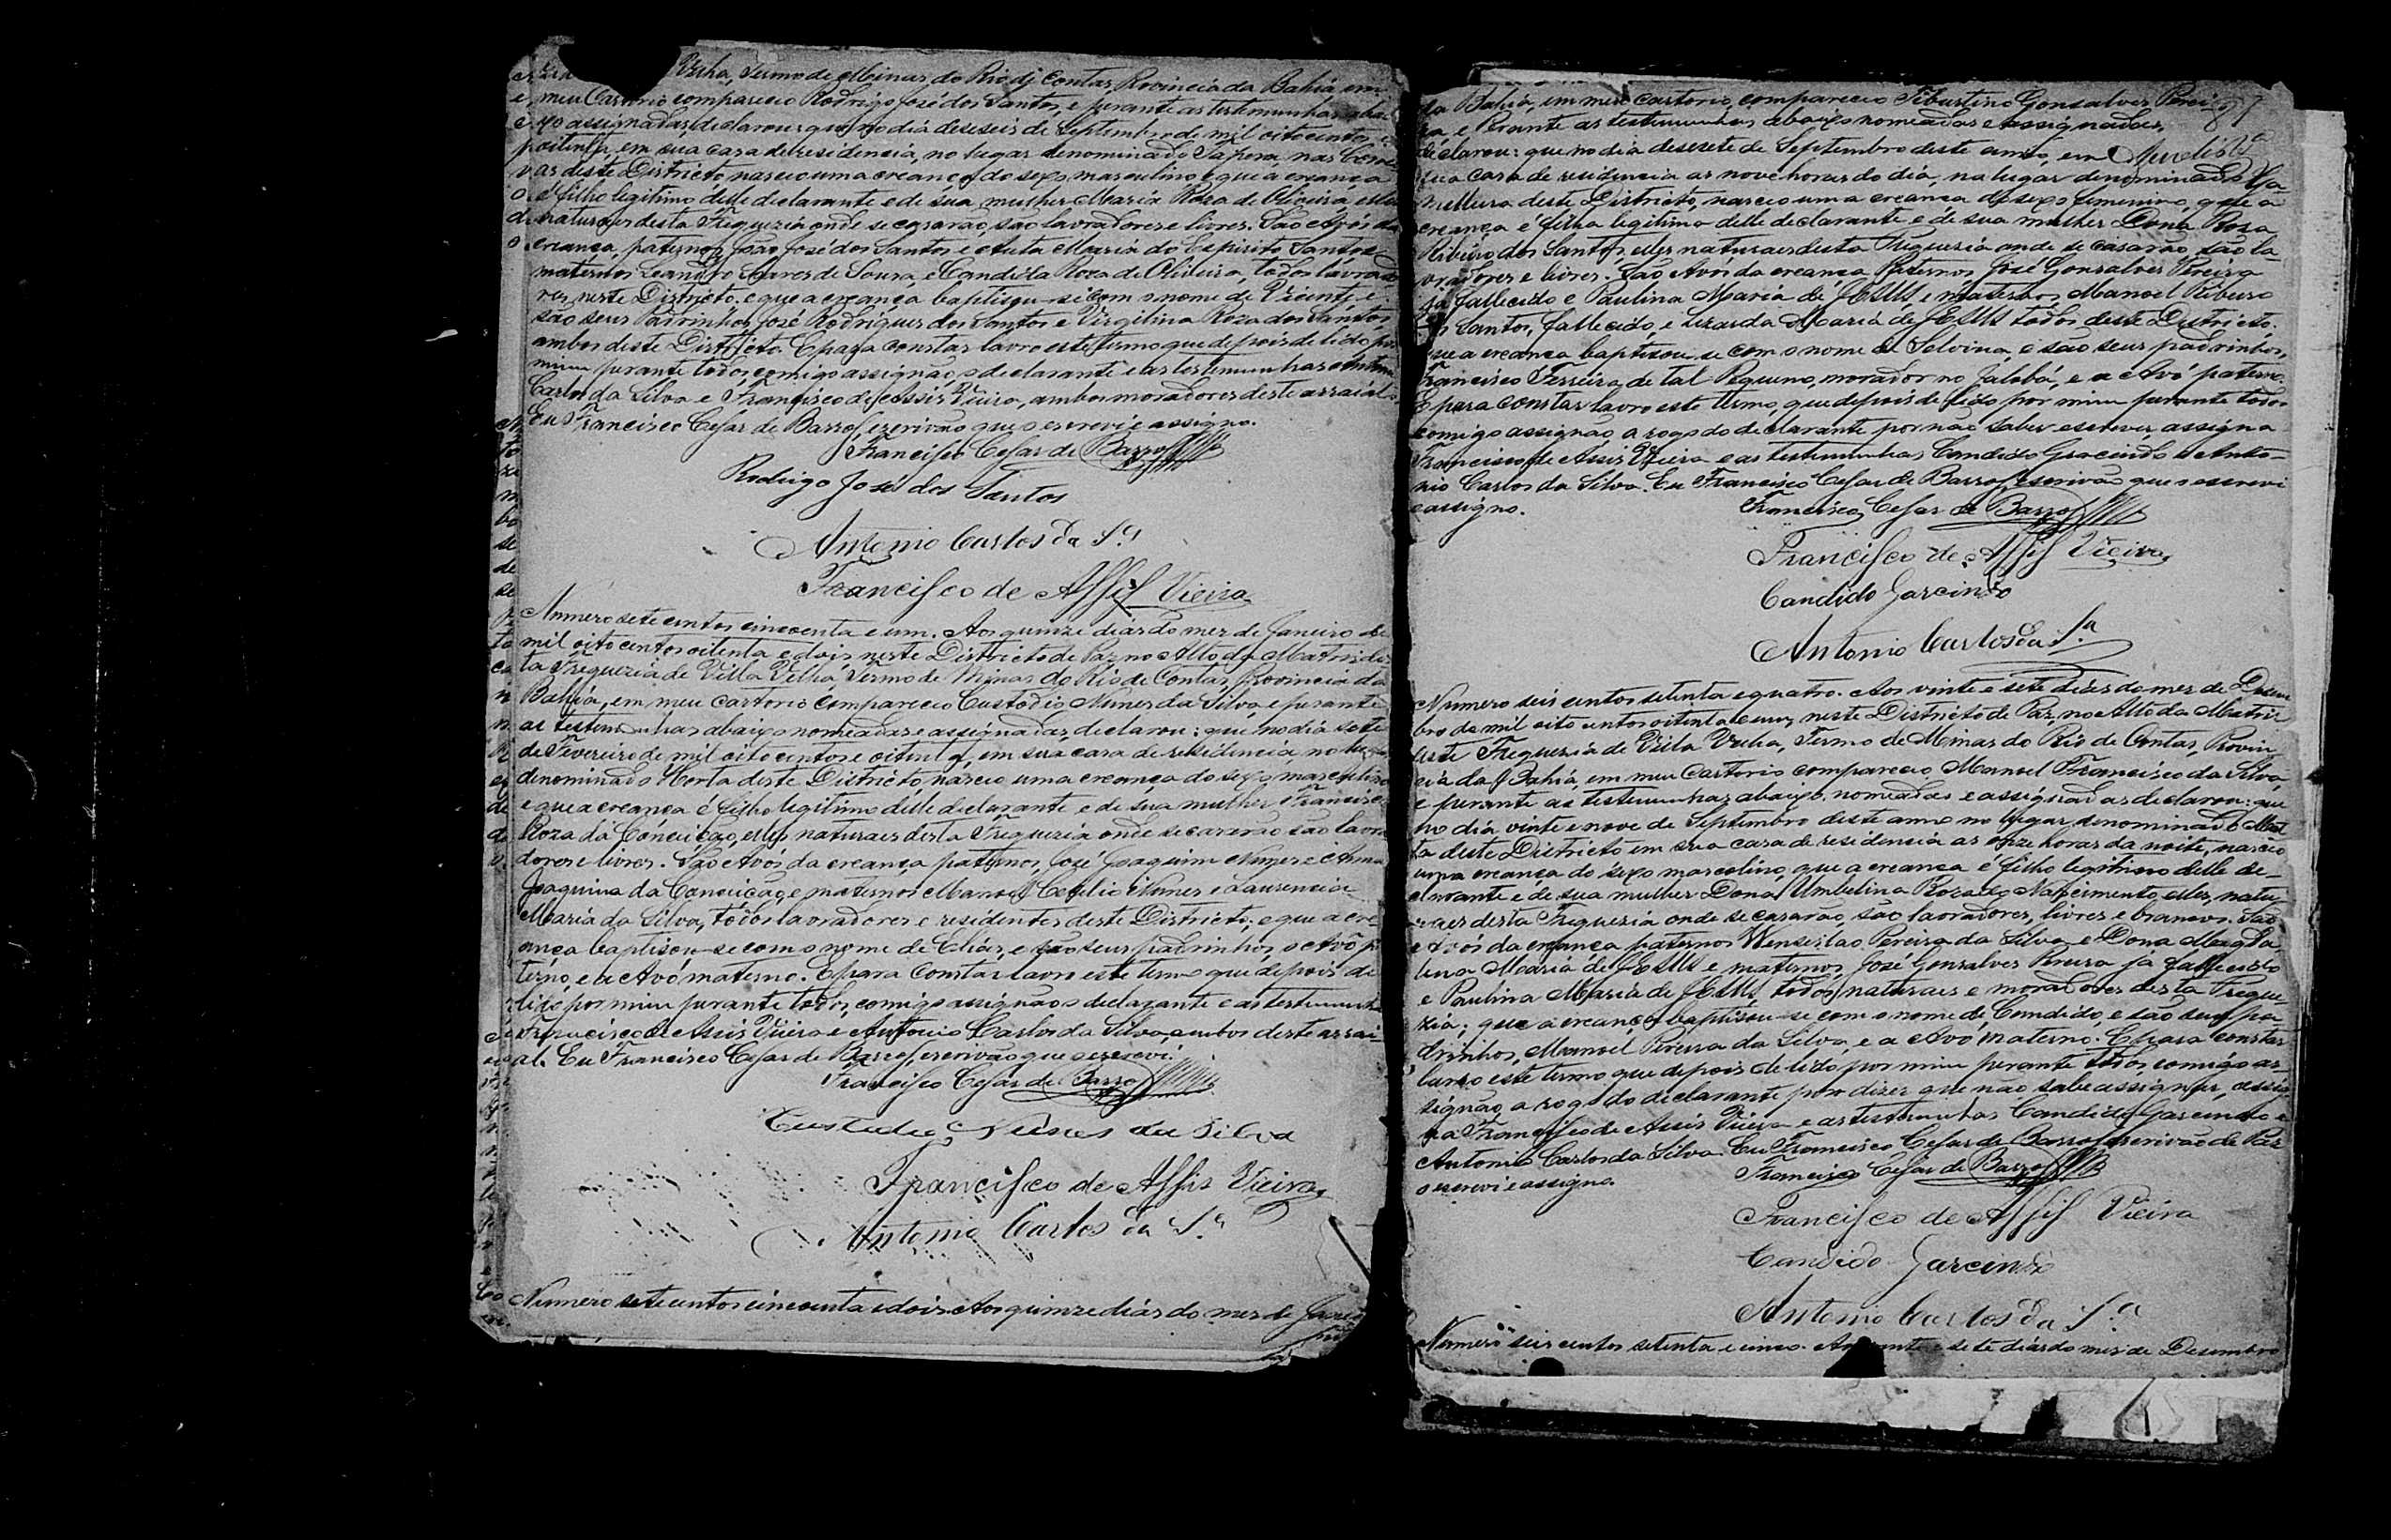 Velha, Termo de Minas do Rio de Contas, Provincia da Bahia em
meu Cartorio compareceo Rodrigo José dos Santos, e perante as testimunhas abai
xo assignadas declarou: que no dia deseseis de Septembro de mil oito centos e
oitenta, em sua casa de residencia, no lugar denominado Tapera nas
deste Districto, nasceo uma creança do sexo masculino e que a creança
é filho legitimo delle declarante e de sua mulher Maria Roza de Oliveira elles
naturaes desta Freguezia onde se casarão, são lavradores e livres. São Avós da
creança, paternos João José dos Santos e Anta Maria do Espirito Santo e
maternos Leandro Soares de Souza, e Candida Roza de Oliveira, todos lavrado
res neste Districto. e que a creança baptisou-se com o nome de Vicente e
são seus Padrinhos José Rodrigues dos Santos e Virgilina Roza dos Santos,
ambos deste Districto. E para constar lavro este termo que depois de lido por
mim perante todos, comigo assignão, o declarante e as testimunhas Antonio
Carlos da Silva e Francisco de Assis Vieira, ambos moradores deste arraial.
Eu Francisco Cesar de Barros, escrivão que o escrevi e assigno.
Francisco Cesar de Barros
Rodrigo José dos Santos
Antonio Carlos da Sª
Francisco de Assis Vieira
Numero sete centos cincoenta e um. Aos quinze dias do mez de Janeiro de
mil oito centos oitenta e dois, neste Districto de Paz no Alto da Matriz des
ta Freguezia de Villa Velha, Termo de Minas do Rio de Contas, Provincia da
Bahia, em meu cartorio compareceo Custodio Nunes da Silva, e perante
as testemunhas abaixo nomeadas e assignadas, declarou: que no dia sete
de Fevereiro de mil oito centos e oitenta, em sua casa de residencia, no lugar
denominado Horta deste Districto, nasceo uma creança do sexo masculino
e que a creança é filho legitimo delle declarante e de sua mulher Francisca
Roza da Conceição, elles naturaes desta Freguezia onde se casarão são lavra
dores e livres. São Avós da creança, paternos, José Joaquim Nunes e Anna
Joaquina da Conceição, e maternos Manoel Nunes e Laurencia
Maria da Silva, todos lavradores e residentes deste Districto; e que a cre
ança baptisou-se com o nome de Elias, e são seus padrinhos, o Avô pa
terno, e a Avó materno. E para constar lavro este termo que depois de
lido por mim perante todos, comigo assignão o declarante e as testimunhas
Francisco de Assis Vieira e Antonio Carlos da Silva, ambos deste arrai
al. Eu Francisco Cesar de Barros, escrivão que o escrevi.
Francisco Cesar de Barros
Custodio Nunes da Silva
Francisco de Assis Vieira
Antonio Carlos da Sª
Numero sete centos cincoenta e dois. Aos quinze dias do mes de Janei
da Bahia, em meu cartorio, compareceo Tiburtino Gonsalves Perei
ra e Perante as testimunhas abaixo nomeadas e assignadas,
declarou: que no dia desesete de Septembro deste anno, em
sua casa de residencia as nove horas do dia, na lugar denominado
deste Districto, nasceo uma creança do sexo feminino, que a
creança é filha legitima delle declarante e de sua mulher Dona Rosa
Ribeiro dos Santos, elles naturaes desta Freguezia onde se casarão, são la
vradores e livres. São Avós da creança Paternos José Gonsalves Pereira
já fallecido e Paulina Maria de JESUS, e maternos Manoel Ribeiro
dos Santos, fallecido, e Maria de JESUS todos deste Districto.
que a creança baptisou-se com o nome de Selvina, e são seus padrinhos,
Francisco Ferreira de tal Pequeno, morador no Jalobá, e a Avó paterno.
E para constar lavro este termo, que depois de lido por mim perante todos
comigo assignão a rogo do declarante por não saber escrever, assigna
Francisco de Assis Vieira e as testimunhas Candido Gracindo e Anto-
nio Carlos da Silva. Eu Francisco Cesar de Barros, escrivão que o escrevi
e assigno.
Francisco Cesar de Barros
Francisco de Assis Vieira
Candido Garcindo
Antonio Carlos da Sª
Numero seis centos setenta e quatro. Aos vinte e sete dias do mez de Dezem
bro de mil oito centos oitenta e um, neste Districto de Paz, no Alto da Matriz
deste Freguezia de Villa Velha, Termo de Minas do Rio de Contas, Provin
cia da Bahia, em meu cartorio compareceo Manoel Francisco da Silva,
e perante as testimunhas abaixo nomeadas e assignadas declarou: que
no dia vinte e nove de Septembro deste anno no lugar denominado
ta deste Districto em sua casa de residencia as onze horas da noite, nasceo
uma creança do sexo mascolino, que a creança é filho legitimo delle de-
clarante e de sua mulher Dona Umbelina Roza do Nascimento, elles, natu
raes desta Freguezia onde se casarão, são lavradores, livres e brancos. São
Avós da creança paternos Wenseslao Pereira da Silva e Dona Magda
lena Maria de JESUS e maternos José Gonsalves Pereira já fallecido
e Paulina Maria de JESUS, todos naturaes e moradores desta Fregue
zia; que a creança baptisou-se com o nome de Candido, e são seus pa
drinhos, Manoel Pereira da Silva, e a Avó materno. E para constar
lavro este termo que depois de lido por mim perante todos, comigo as-
signão, a rogo do declarante por dizer que não sabe assignar, assig
na Francisco de Assis Vieira e as testimunhas Candido Garcindo e
Antonio Carlos da Silva. Eu Francisco Cesar de Barros escrivão de Paz
o escrevi e assigno.
Francisco Cesar de Barros
Francisco de Assis Vieira
Candido Garcindo
Antonio Carlos da Sª
Numero seis centos setenta e cinco. Aos vinte e sete dias do mez de Desembro